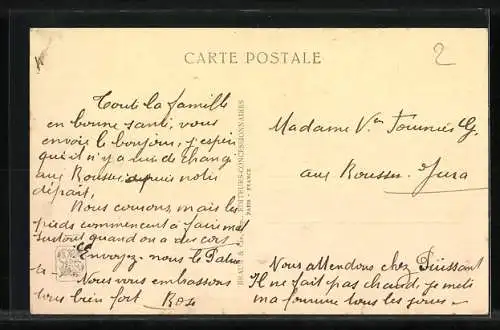 CARTE POSTALE
2
Toute la famille
en bonne santé, vous
envoie le bonjour, j'espère
qu'il n'y a rien de changé
aux Rousses depuis notre
départ,
Nous courons mais les
pieds commencent à faire mal
surtout quand on a des cors
Envoyez-nous le
Nous vous embrassons
tous bien fort
BRAUN & Cie, EDITEURS-CONCESSIONNAIRES
PARIS - FRANCE
Madame Vve Fournier
aux Rousses Jura
Nous attendons chez
Il ne fait pas chaud, je mets
ma fourrure tous les jours